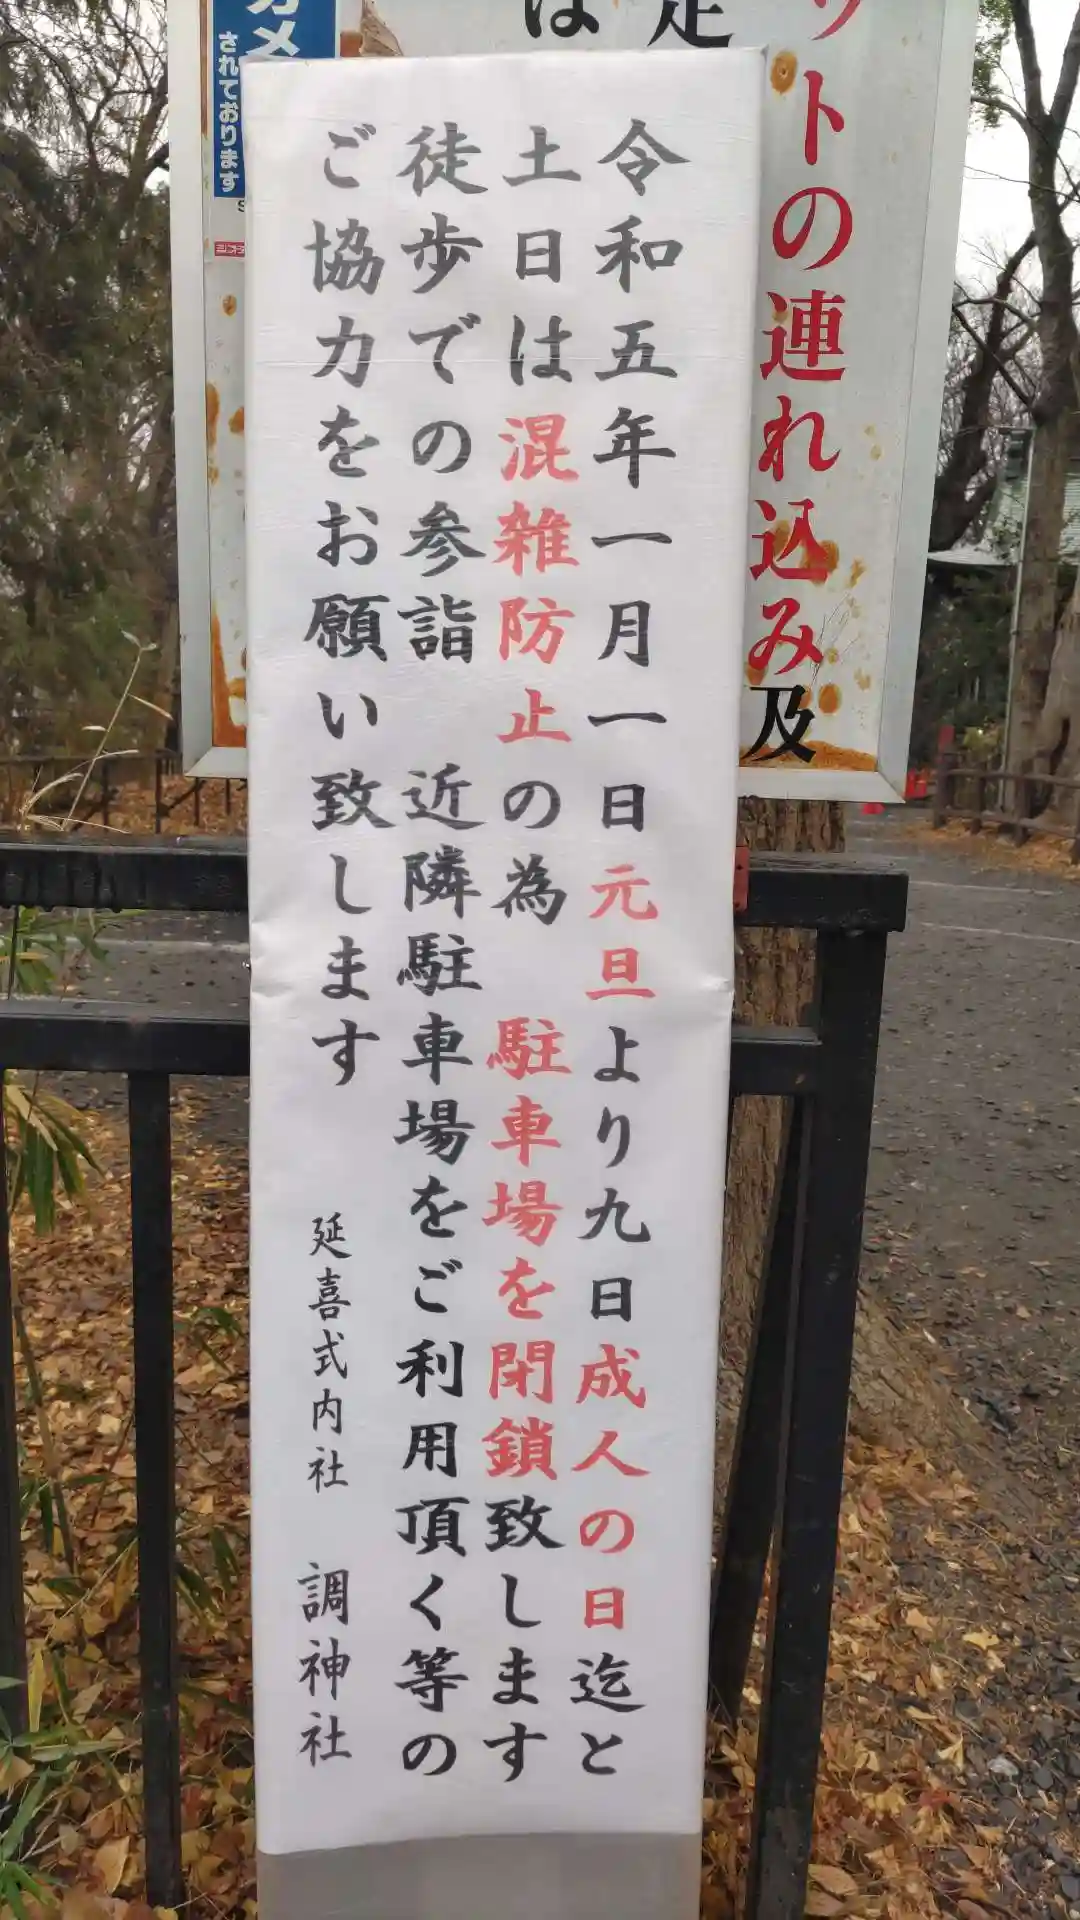 令和五年一月一日元旦より九日成人の日迄と
土日は混雑防止の為　駐車場を閉鎖致します
徒歩での参詣　近隣駐車場をご利用頂く等の
ご協力をお願い致します
延喜式内社　調神社
ットの連れ込み及
は
カメ
されております